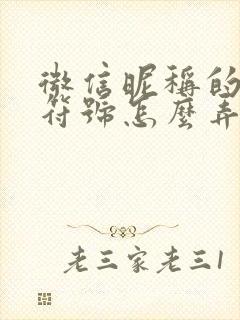 微信昵稱的
符號怎麼弄
老三家老三1